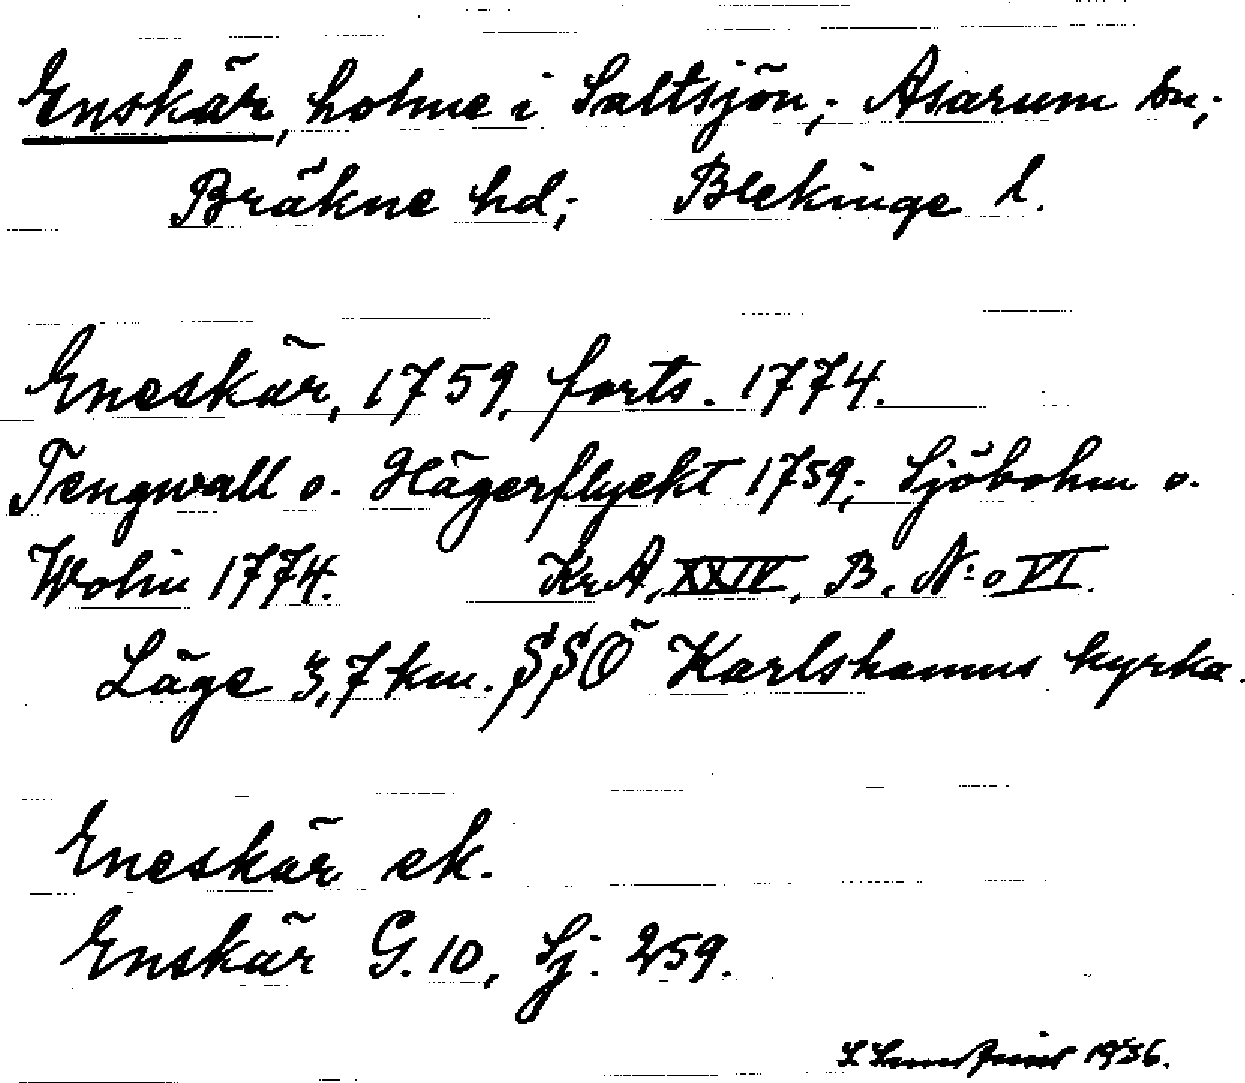 Enskär, holme i Saltsjön; Asarum sn;
Bräkne hd; Blekinge l.
Eneskär, 1759, forts. 1774.
Tengwall o. Hägerflyckt 1759; Sjöbohm o.
Wolin 1774. Kr.A. XXIV, B. N:o VI.
Läge 3,7 km. SSÖ Karlshamns kyrka.
Eneskär ek.
Enskär G. 10, Sj. 259.
1936.